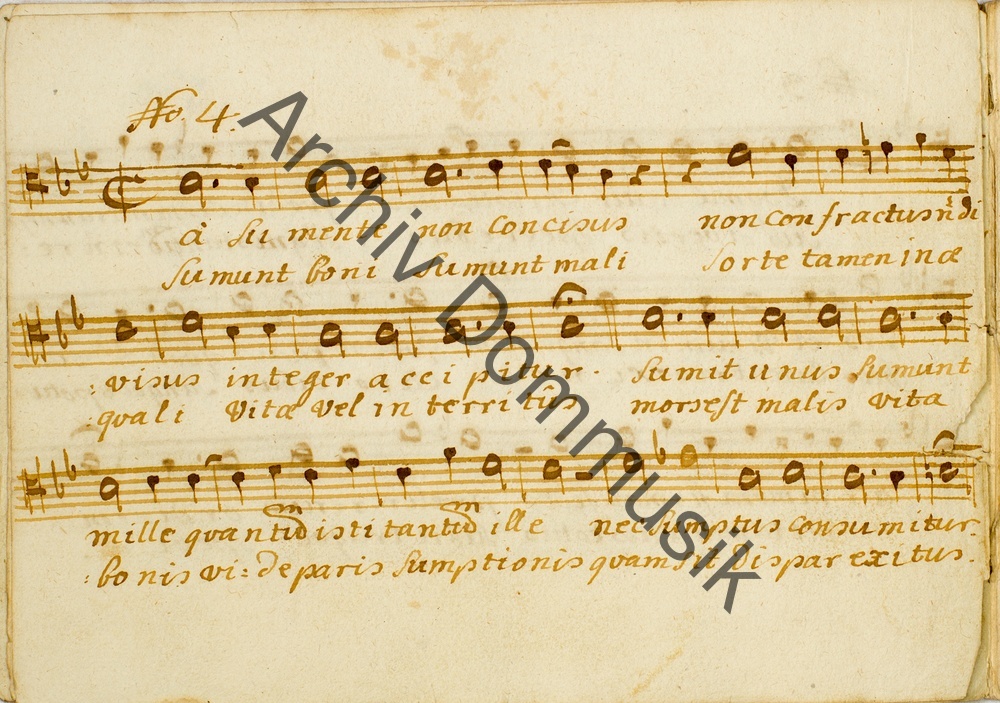 No. 4.
à su mente non concisus non confractus ñ di
sumunt boni sumunt mali sorte tamen inæ
: visus integer accipitur. sumit unus sumunt
quali Vitæ vel interritus mors est malis vita
mille quantū isti tantū ille nec sumptus consumitur.
: bonis vi: de paris sumptionis quam sit dispar exitus.
Archiv Dommusik